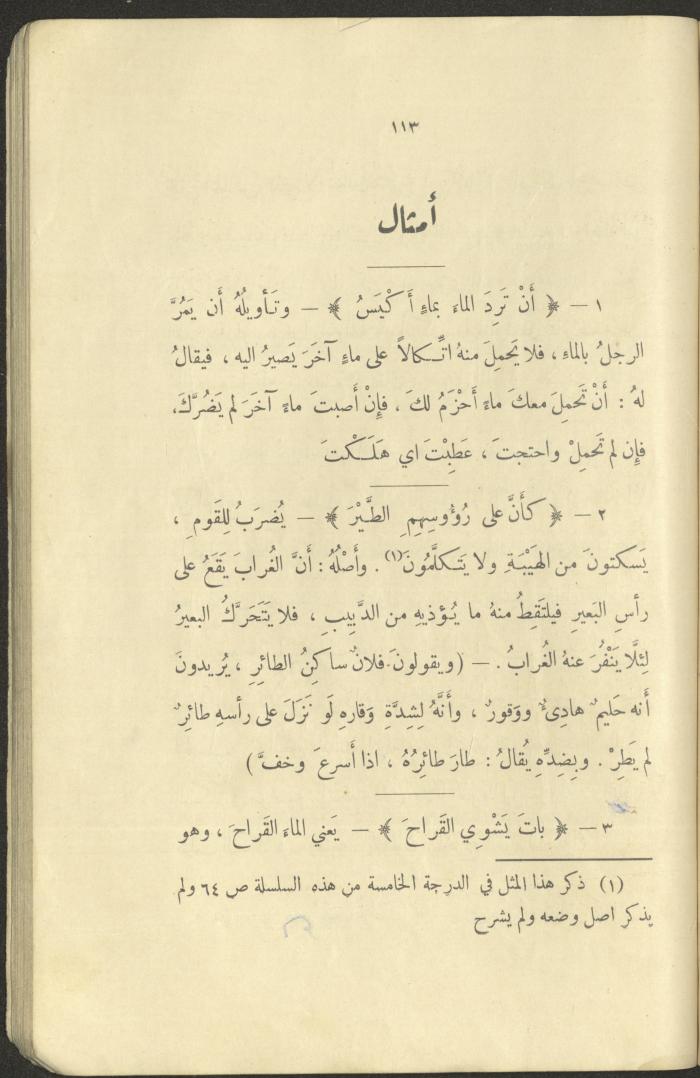 ١١٣
أمثال
١ – ﴿ أَنْ تَرِدَ الماءَ بماءٍ أَكْيَسُ ﴾ – وتَأويلُهُ أَن يَمُرَّ
الرجلُ بالماءِ ، فلا يَحمِلَ منهُ اتِّكالاً على ماءٍ آخَرَ يَصيرُ اليه ، فيقالُ
لهُ : أَنْ تَحمِلَ معكَ ماءً أَحْزَمُ لكَ ، فإِنْ أَصبتَ ماءً آخَرَ لم يَضُرَّكَ،
فإِن لم تَحمِلْ واحتجتَ ، عَطِبْتَ اي هَلَكْتَ
٢ – ﴿ كأَنَّ على رُؤوسِهِمِ الطَّيْرَ ﴾ – يُضرَبُ لِلقَومِ ،
يَسكتونَ من الهَيْبَةِ ولا يَتَكلَّمُونَ(١) . وأَصْلُهُ : أَنَّ الغُرابَ يَقَعُ على
رأسِ البَعيرِ فيلتَقِطُ منهُ ما يُؤذيهِ من الدَّبيبِ ، فلا يَتَحَرَّكُ البعيرُ
لِئلَّا يَنْفُرَ عنهُ الغُرابُ . – (ويقولونَ فلانٌ ساكِنُ الطائِرِ ، يُريدونَ
أَنه حَليمٌ هادِئٌ ووَقورٌ ، وأَنَّهُ لِشِدَّةِ وَقارهِ لَو نَزَلَ على رأسهِ طائِرٌ
لم يَطِرْ . وبِضِدِّهِ يُقالُ : طارَ طائِرُهُ ، اذا أَسرعَ وخفَّ )
٣ – ﴿ باتَ يَشْوِي القَراحَ ﴾ – يَعني الماءَ القَراحَ ، وهو
(١) ذكر هذا المثل في الدرجة الخامسة من هذه السلسلة ص ٦٤ ولم
يذكر اصل وضعه ولم يشرح